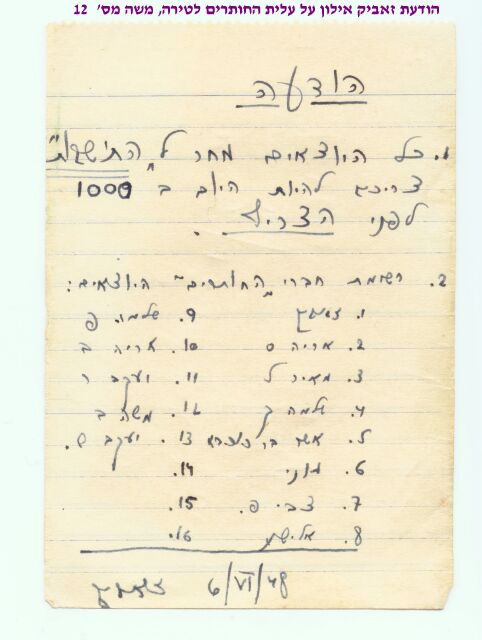 הודעת זאביק אילון על עלית החותרים לטירה, משה מס' 12
הודעה
1. כל היוצאים מחר ל"התישבות"
צריכים להיות היום ב 1000
לפני הצריף.
2. רשימת חברי "החותרים" היוצאים:
1. זאביק
9. שלמה פ
2. אריה ס
10. אריה ב
3. מאיר ל
11. יעקב ר
4. שלמה ק
12. משה ב
5. אשר
13. יעקב ש.
6.
14.
7. צבי פ.
15.
8. אלישע
16.
6/VI/48
זאביק